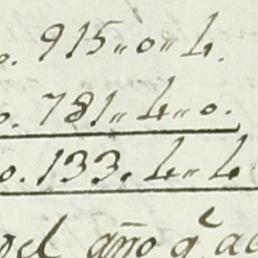 o. 915,,0,,4.
o. 781,,4,,0.
o. 133,4,,4
del año q.e ac